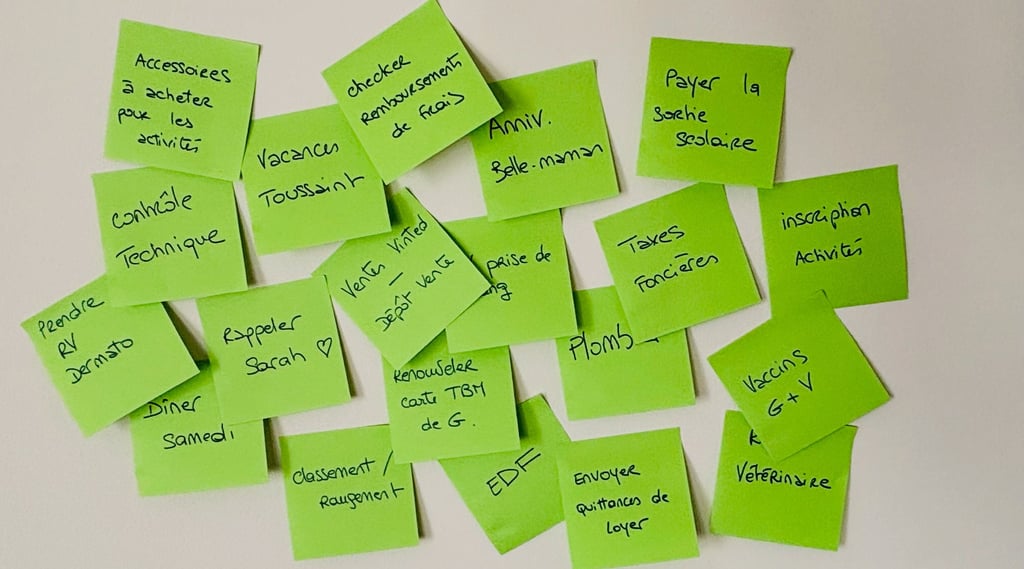 Accessoires
à acheter
pour les
activités
checker
remboursements
de frais
Anniv.
Belle-maman
Payer la
sortie
scolaire
Vacances
Toussaint
Contrôle
Technique
Ventes Vinted
–
Dépôt Vente
prise de
Taxes
Foncières
inscription
Activités
Prendre
RV
Dermato
Rappeler
Sarah ♡
Plomb
Vaccins
G + V
Dîner
Samedi
Renouveler
carte TBM
de G.
Classement /
Rangement
EDF
Envoyer
quittances de
loyer
Vétérinaire